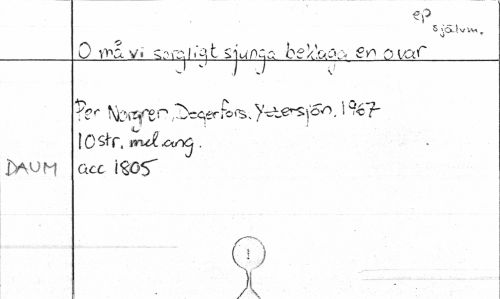 ep
självm.
O må vi sorgligt sjunga beklaga en o var
Per Norgren, Degerfors, Yttersjön, 1967
10 str, mel.ang.
DAUM acc 1805